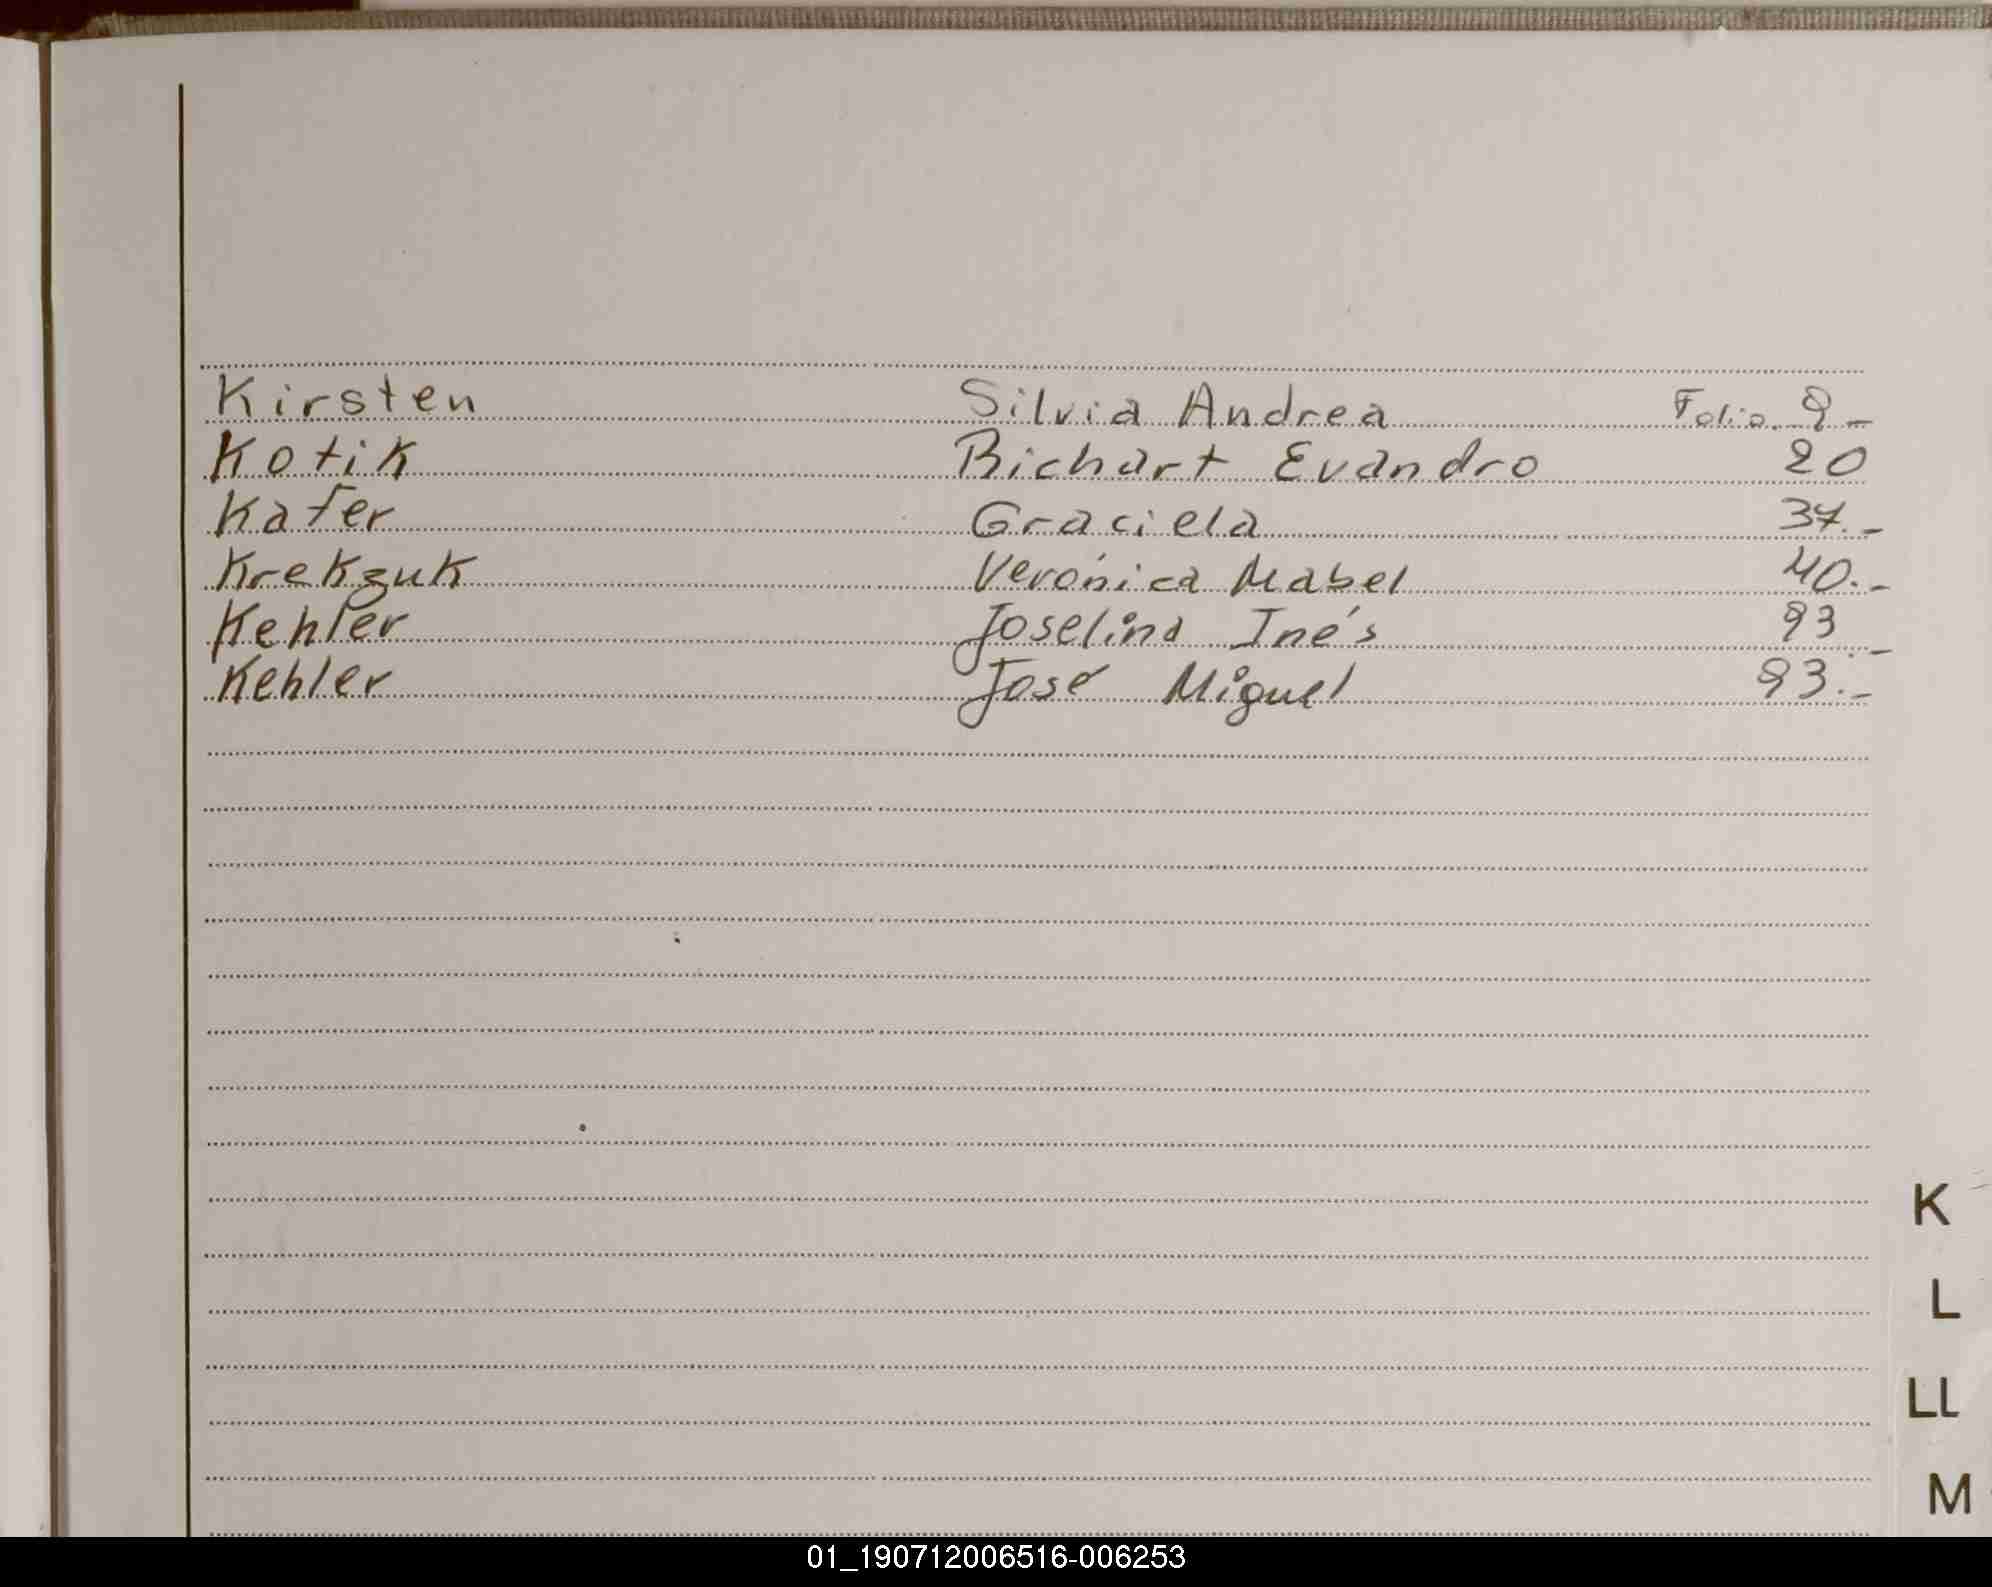 Kirsten Silvia Andrea Folio 9.-
Kotik Richart Evandro 20
Kafer Graciela 37.-
Krekzuk Verónica Mabel 40.-
Kehler Joselina Inés 93.-
Kehler José Miguel 93.-
K
L
LL
M
01_190712006516-006253